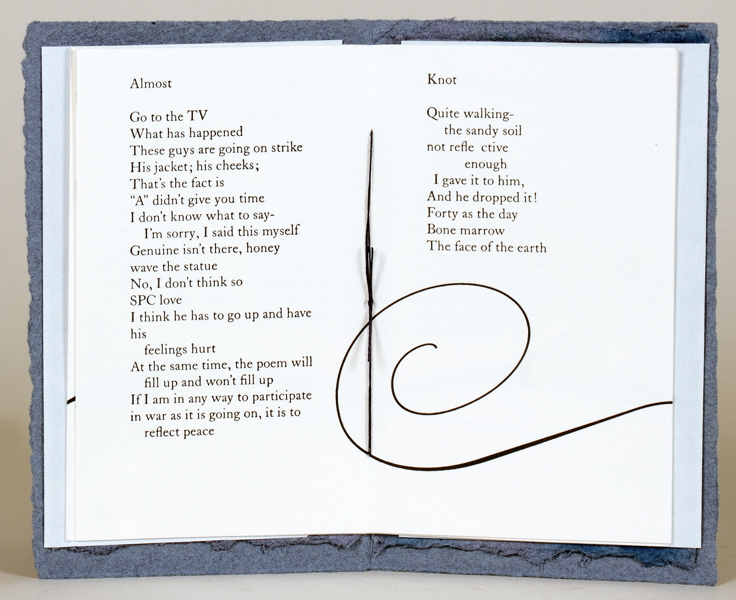 Almost
Go to the TV
What has happened
These guys are going on strike
His jacket; his cheeks;
That's the fact is
“A” didn't give you time
I don't know what to say-
I'm sorry, I said this myself
Genuine isn't there, honey
wave the statue
No, I don't think so
SPC love
I think he has to go up and have
his
feelings hurt
At the same time, the poem will
fill up and won't fill up
If I am in any way to participate
in war as it is going on, it is to
reflect peace
Knot
Quite walking-
the sandy soil
not refle ctive
enough
I gave it to him,
And he dropped it!
Forty as the day
Bone marrow
The face of the earth